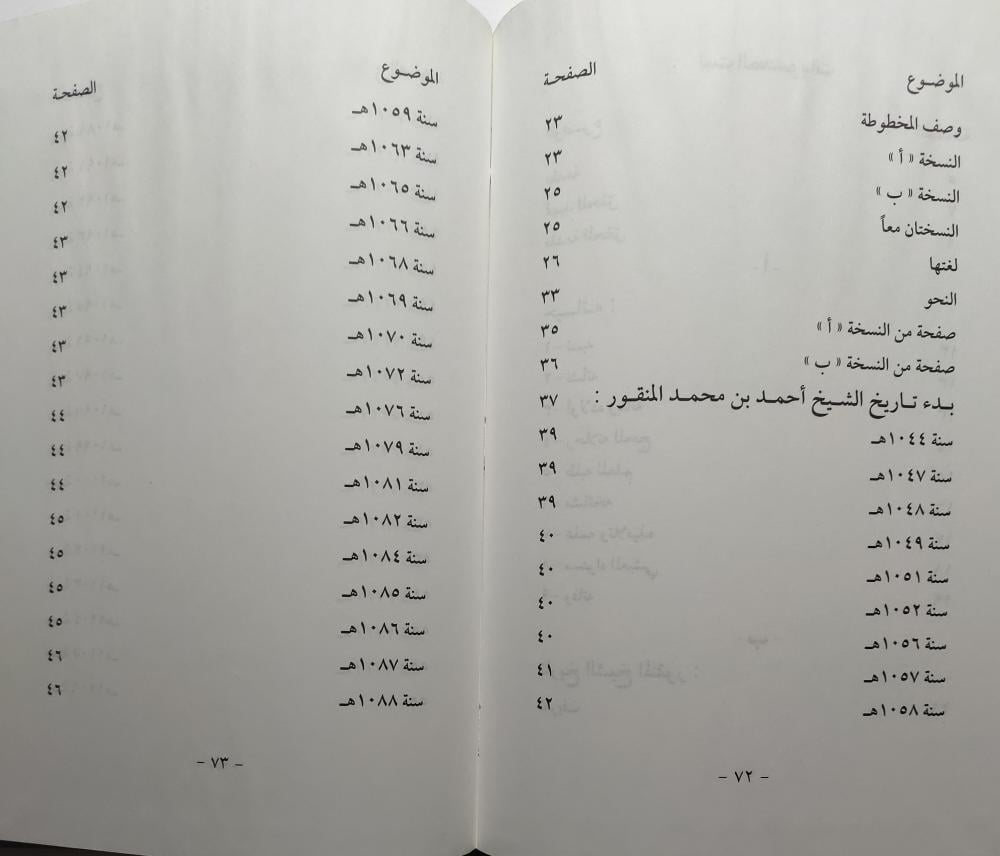 الموضـوع الصفحـة
وصف المخطوطة ٢٣
النسخة « أ » ٢٣
النسخة « ب » ٢٥
النسختان معاً ٢٥
لغتها ٢٦
النحو ٣٣
صفحة من النسخة « أ » ٣٥
صفحة من النسخة « ب » ٣٦
بـدء تـاريخ الشـيخ أحمـد بن محمـد المنقـور : ٣٧
سنة ١٠٤٤هـ ٣٩
سنة ١٠٤٧هـ ٣٩
سنة ١٠٤٨هـ ٣٩
سنة ١٠٤٩هـ ٤٠
سنة ١٠٥١هـ ٤٠
سنة ١٠٥٢هـ ٤٠
سنة ١٠٥٦هـ ٤٠
سنة ١٠٥٧هـ ٤١
سنة ١٠٥٨هـ ٤٢
– ٧٢ –
الموضـوع الصفحـة
سنة ١٠٥٩هـ ٤٢
سنة ١٠٦٣هـ ٤٢
سنة ١٠٦٥هـ ٤٢
سنة ١٠٦٦هـ ٤٣
سنة ١٠٦٨هـ ٤٣
سنة ١٠٦٩هـ ٤٣
سنة ١٠٧٠هـ ٤٣
سنة ١٠٧٢هـ ٤٣
سنة ١٠٧٦هـ ٤٤
سنة ١٠٧٩هـ ٤٤
سنة ١٠٨١هـ ٤٤
سنة ١٠٨٢هـ ٤٥
سنة ١٠٨٤هـ ٤٥
سنة ١٠٨٥هـ ٤٥
سنة ١٠٨٦هـ ٤٥
سنة ١٠٨٧هـ ٤٦
سنة ١٠٨٨هـ ٤٦
– ٧٣ –